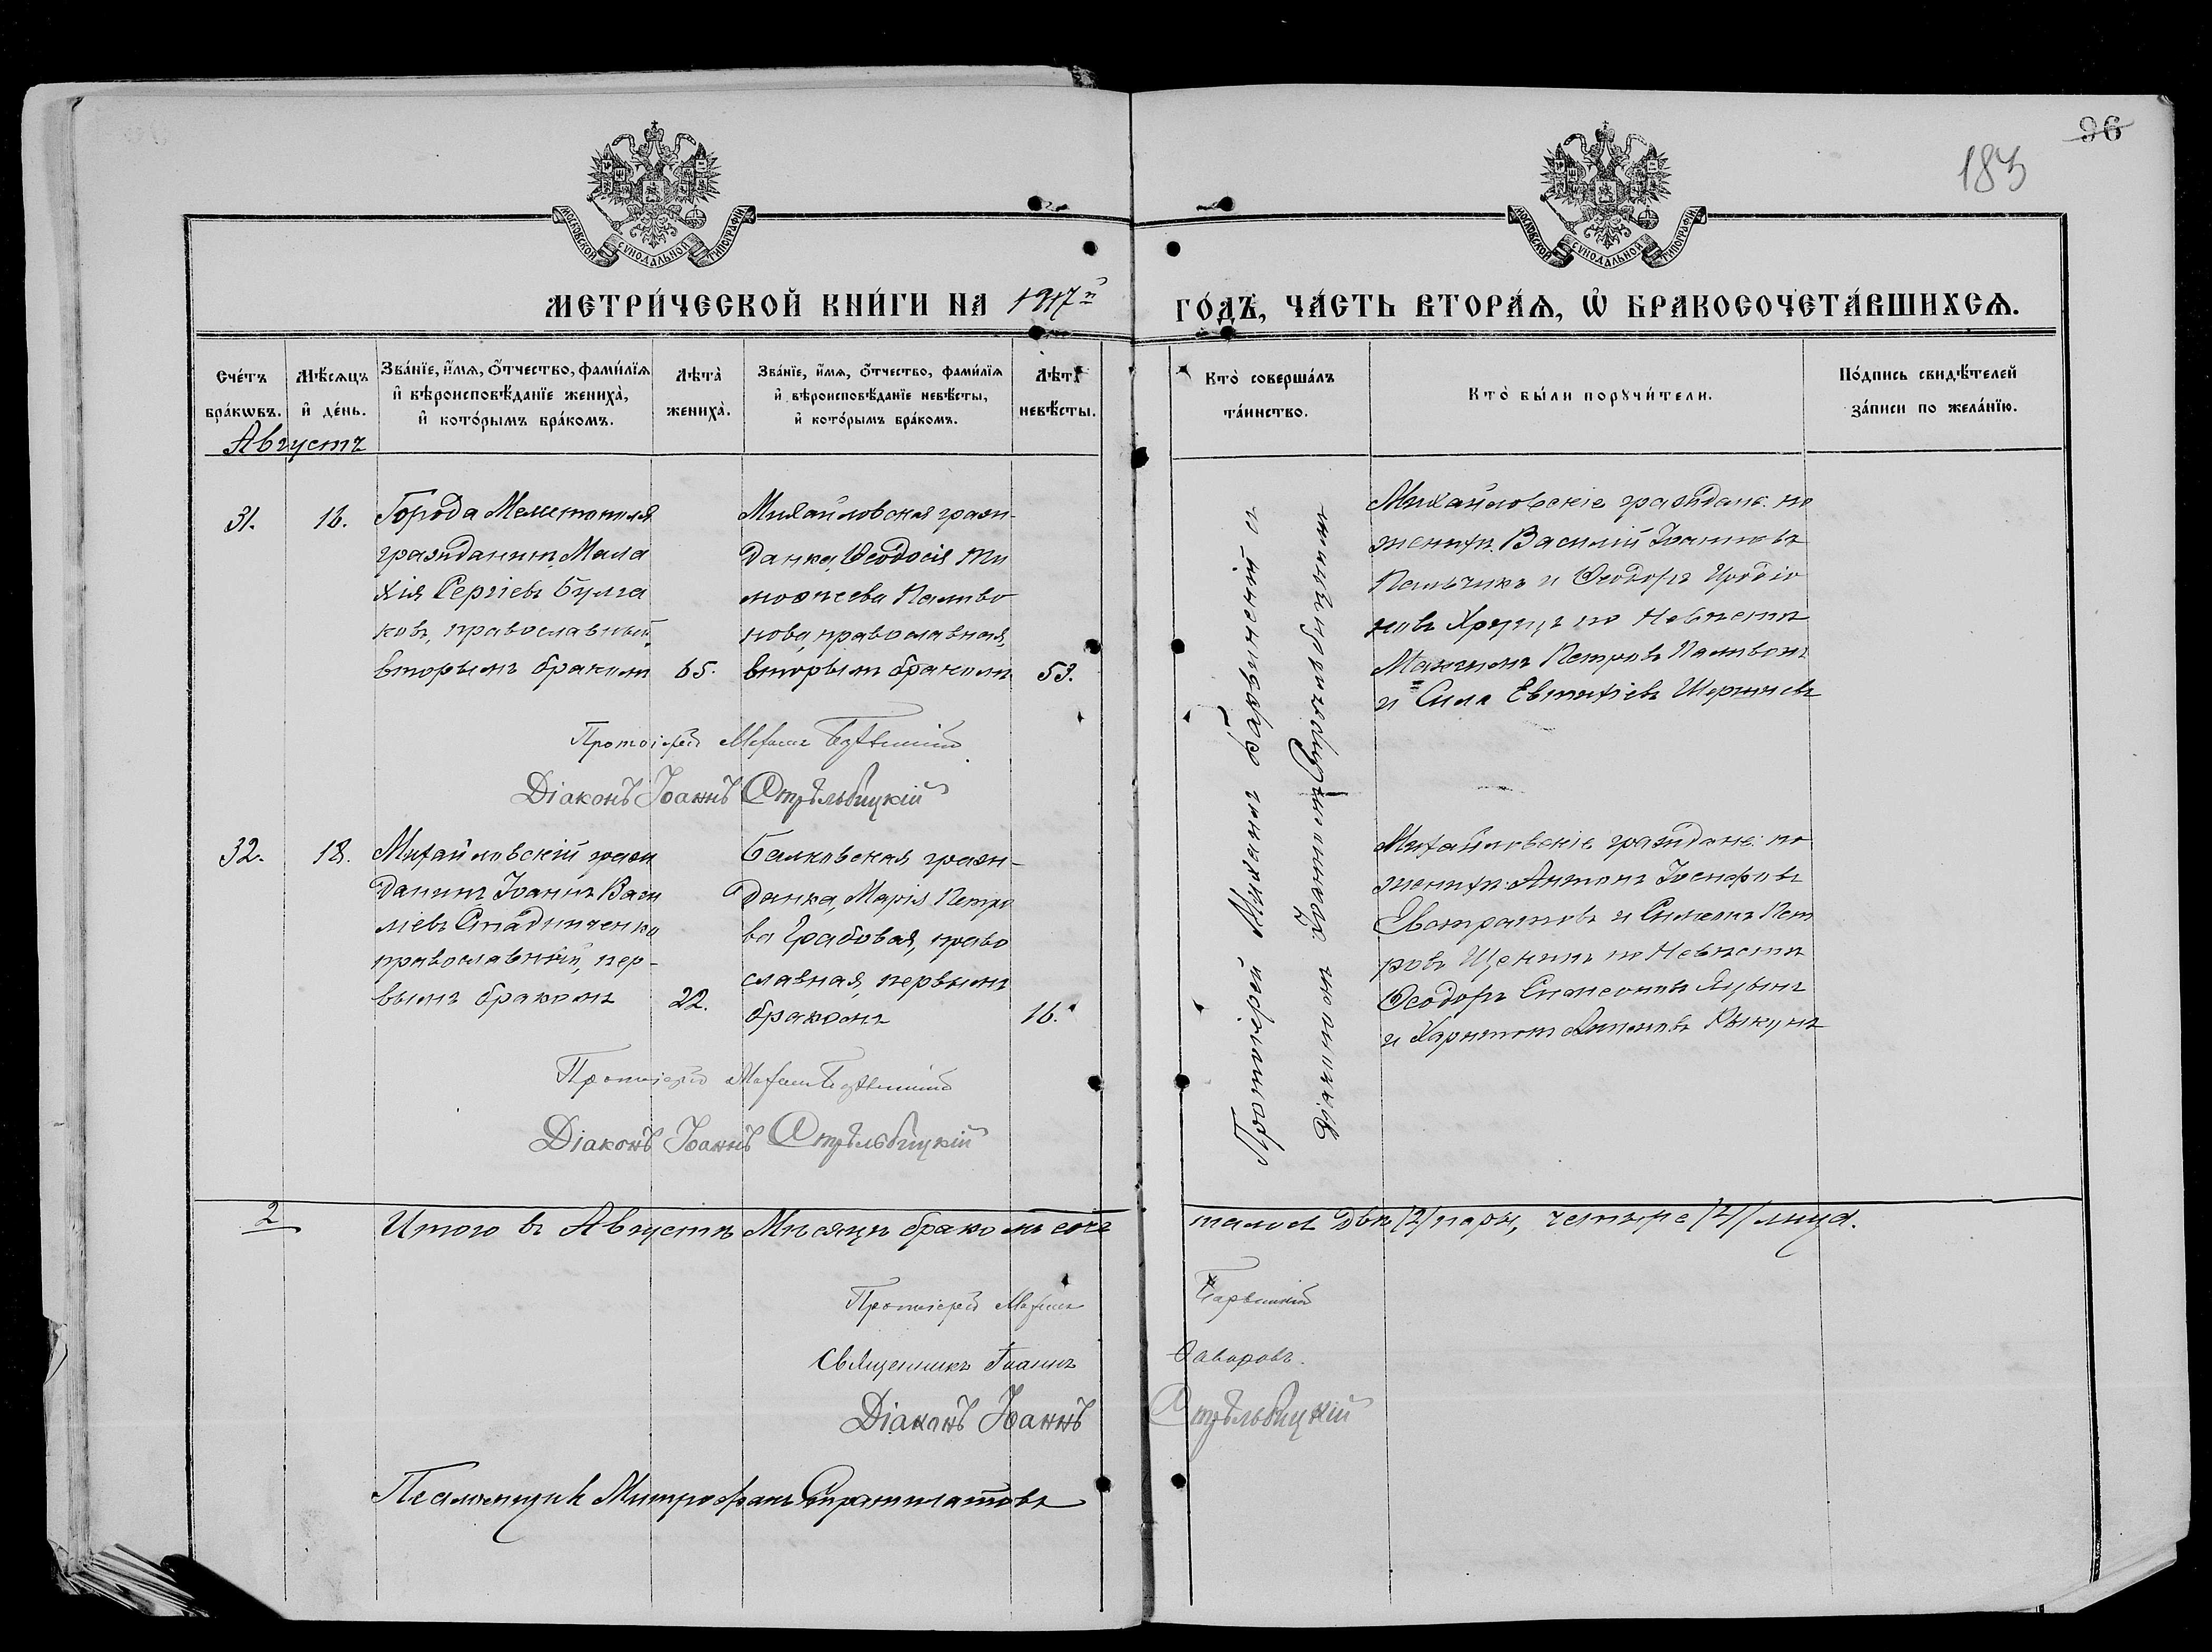 96
183
МОСКОВСКОЙ СУНОДАЛЬНОЙ ТИПОГРАФІИ
МОСКОВСКОЙ СУНОДАЛЬНОЙ ТИПОГРАФІИ
МЕТРИ́ЧЕСКОЙ КНИ́ГИ НА 1917й
ГО́ДЪ, ЧА́СТЬ ВТОРА́Ѧ, Ѡ҆ БРАКОСОЧЕТА́ВШИХСѦ.
Сче́тъ
бра́кѡвъ.
Мѣ́сяцъ
и҆ де́нь.
Зва́нїе, и҆́мя, ѻ҆́тчество, фами́лїя
и҆ вѣроисповѣ́данїе жениха̀,
и҆ кото́рымъ бра́комъ.
Лѣта̀
жениха̀.
Зва́нїе, и҆́мя, ѻ҆́тчество, фами́лїя
и҆ вѣроисповѣ́данїе невѣ́сты,
и҆ кото́рымъ бра́комъ.
Лѣта̀
невѣ́сты.
Кто̀ соверша́лъ
та́инство.
Кто̀ бы́ли порꙋчи́тели.
По́дпись свидѣ́телей
за́писи по жела́нїю.
Августъ
31.
16.
Города Мелитополя
гражданинъ, Мала
хія Сергіевъ Булга
ковъ, православный,
вторымъ бракомъ
65.
Михайловская граж-
данка, Ѳеодосія Ти
моѳеева Паливо
нова, православная,
вторымъ бракомъ
53.
Протоіерей Михаилъ Барвинскій съ
Діакономъ Іоанномъ Стрѣльбицкимъ
Михайловскіе граждане: по
женихѣ: Василій Іоанновъ
Пальчикъ и Ѳеодоръ Иродіо
новъ Хрущъ по невѣстѣ
Максимъ Петровъ Паливонъ
и Сила Евтихіевъ
Протоіерей Михаилъ Барвинскій
Діаконъ Іоаннъ Стрѣльбицкій
32.
18.
Михайловскій граж
данинъ Іоаннъ Васи
ліевъ Стадниченко
православный, пер-
вымъ бракомъ
22.
Балковская граж-
данка, Марія Петро
ва Грабовая, право
славная, первымъ
бракомъ
16.
Михайловскіе граждане: по
женихѣ: Антонъ Іосифовъ
Евстратовъ и Симеонъ Пет
ровъ Щекинъ по невѣстѣ
Ѳеодоръ Симеоновъ
и Харитонъ
Протоіерей Михаилъ Барвинскій
Діаконъ Іоаннъ Стрѣльбицкій
2
Итого въ Августѣ Мѣсяцѣ бракомъ соче
талось двѣ /2/ пары, четыре /4/ лица.
Протоіерей Михаилъ
Барвинскій
Священникъ Іоаннъ
Ѳаворовъ.
Діаконъ Іоаннъ
Стрѣльбицкій
Псаломщикъ Митрофанъ Стратилатовъ